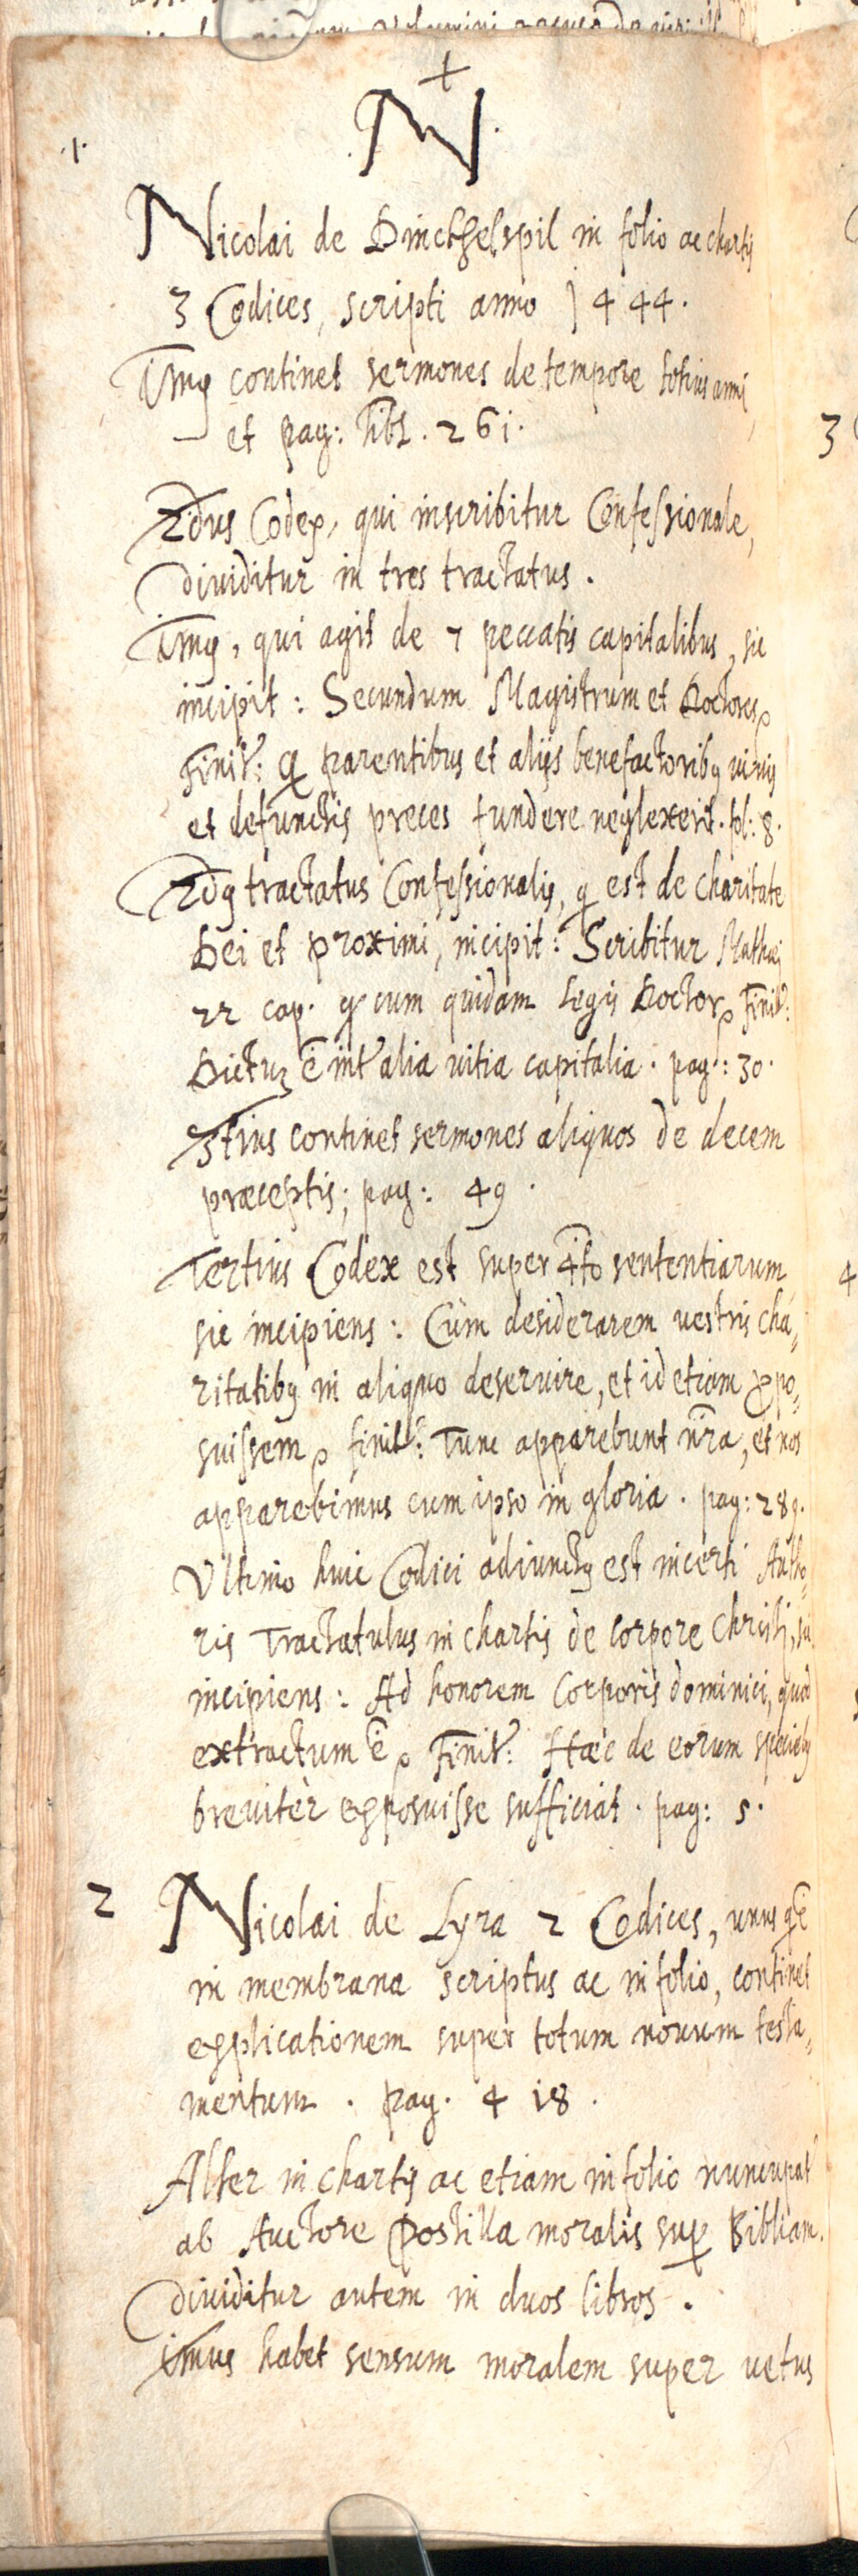 +
N
1.
Nicolai de Dinckhelspil in folio ac chartis
3 Codices, scripti anno 1444.
imus continet sermones de tempore totius anni
et pag: 261.
2dus Codex, qui inscribitur Confessionale,
diuiditur in tres tractatus.
imus, qui agit de 7 peccatis capitalibus, sic
incipit: Secundum Magistrum et Doctores
Finit: q parentibus et alijs benefactoribus viuis
et defunctis preces fundere neglexerit. fol: 8.
2dus tractatus Confessionalis, q est de charitate
Dei et proximi, incipit: Scribitur Mathaei
22 cap. q cum quidam legis Doctor Finit:
Dictum ē inter alia vitia capitalia. pag: 30.
3tius continet sermones aliquos de decem
praeceptis; pag: 49.
Tertius Codex est super 4to sententiarum
sic incipiens: Cùm desiderarem vestris cha,
ritatibus in aliquo deseruire, et id etiam propo,
suissem finit: Tunc apparebunt nra, et nos
apparebimus cum ipso in gloria. pag: 289.
Vltimo huic Codici adiunctus est incerti Autho,
ris Tractatulus in chartis de Corpore Christi, sic
incipiens: Ad honorem Corporis dominici, quod
extractum ē Finit: Haec de eorum speciebus
breuitèr exposuisse sufficiat. pag: 5.
2 Nicolai de Lyra 2 Codices, unus
in membrana scriptus ac in folio, continet
explicationem super totum nouum testa,
mentum. pag. 418.
Alter in chartis ac etiam in folio nuncupat
ab Auctore Postilla moralis super Bibliam.
diuiditur autem in duos libros.
imus habet sensum moralem super uetus
3
4